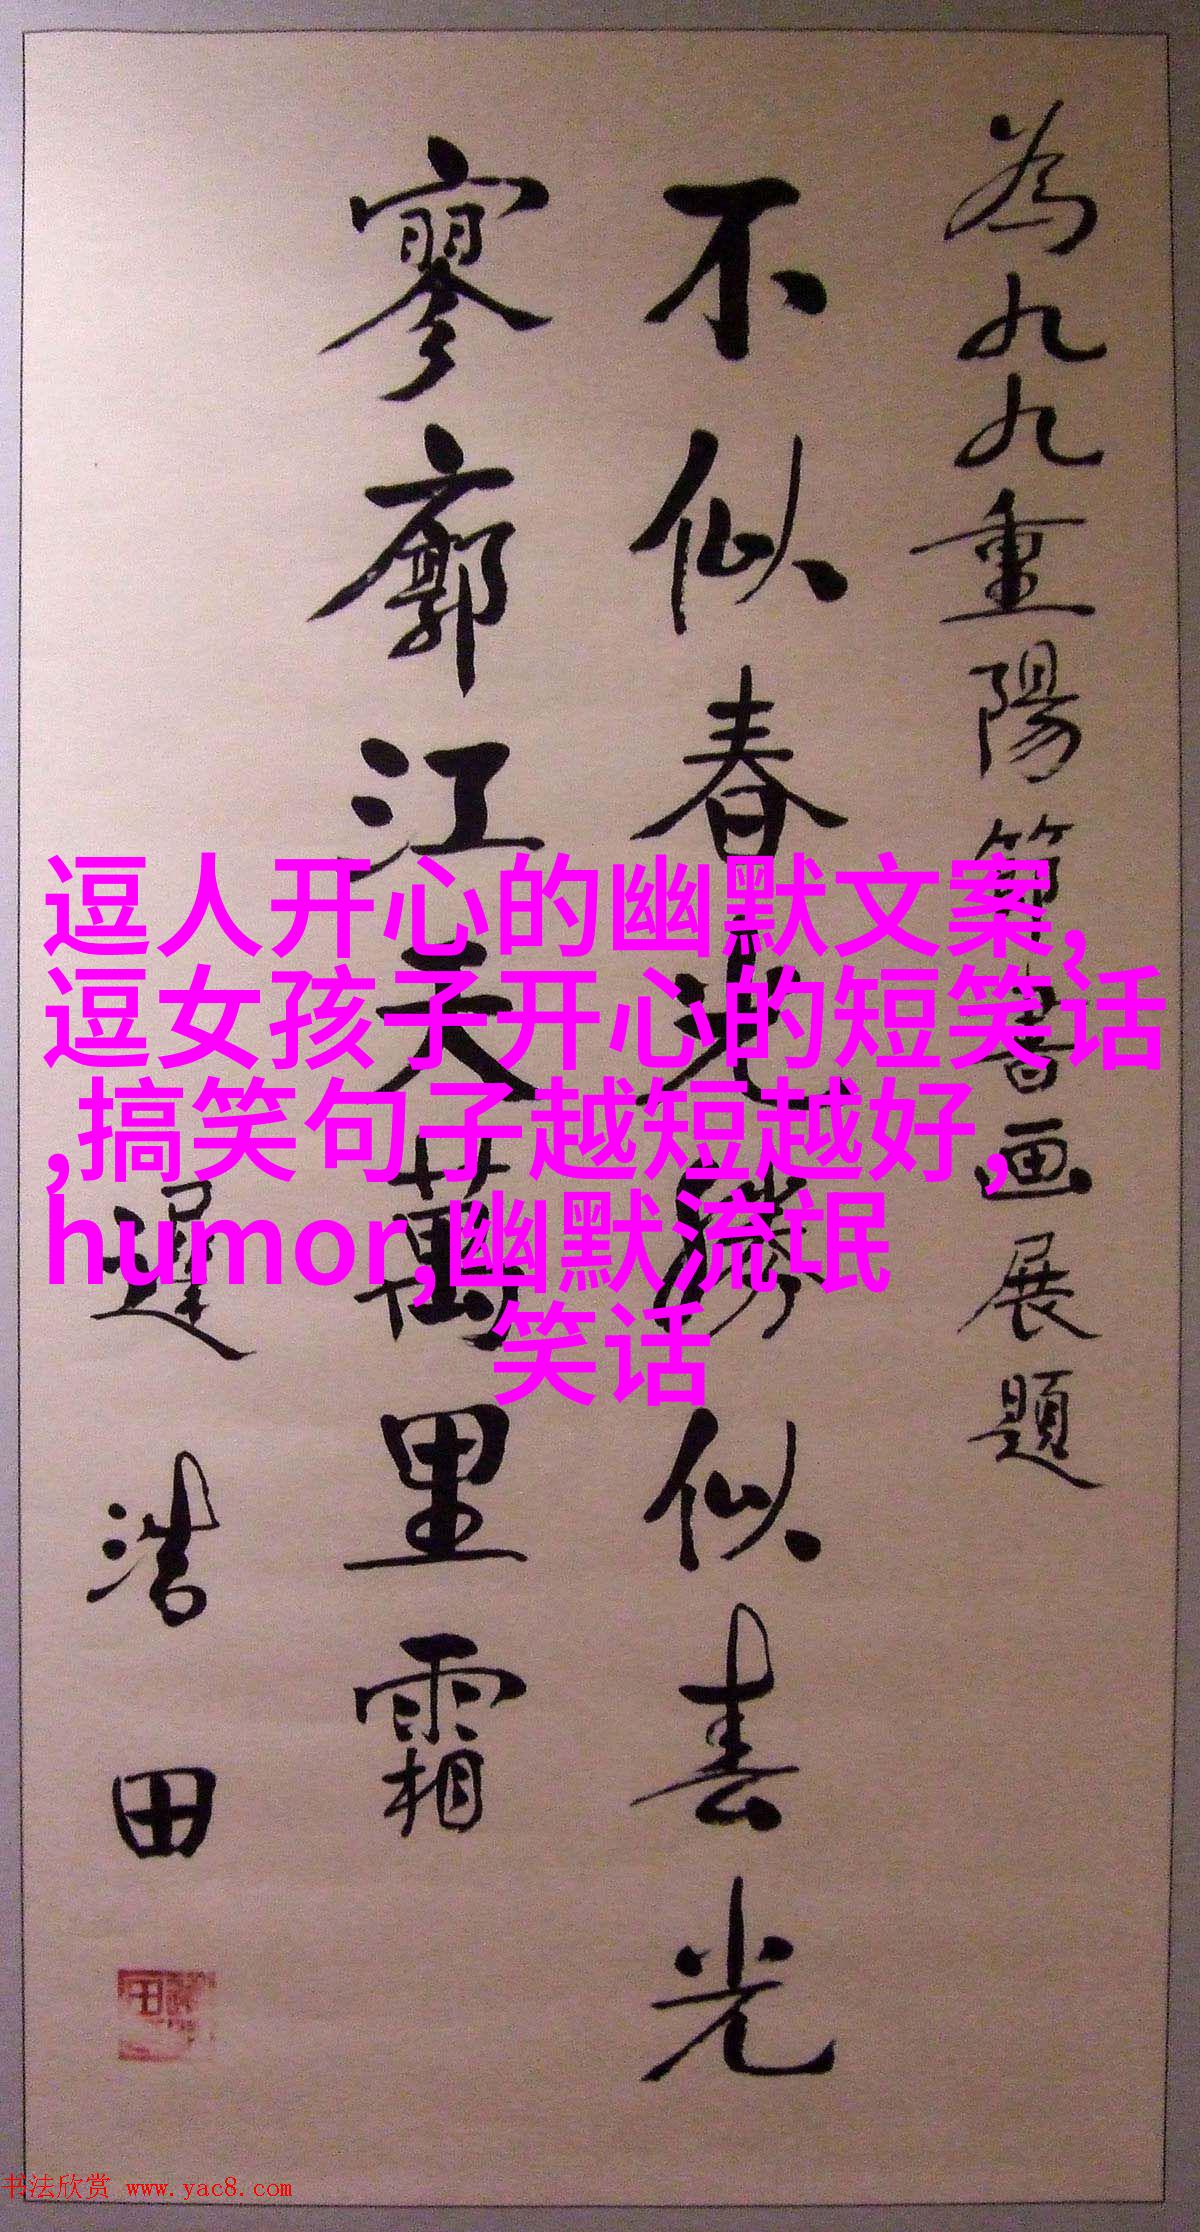 為九九重陽節書画展題
不似春光勝似春光
寥廓江天萬里霜
遲浩田
逗人开心的幽默文案,
逗女孩子开心的短笑话
,搞笑句子越短越好,
humor,幽默流氓
笑话
书法欣赏 www.yac8.com